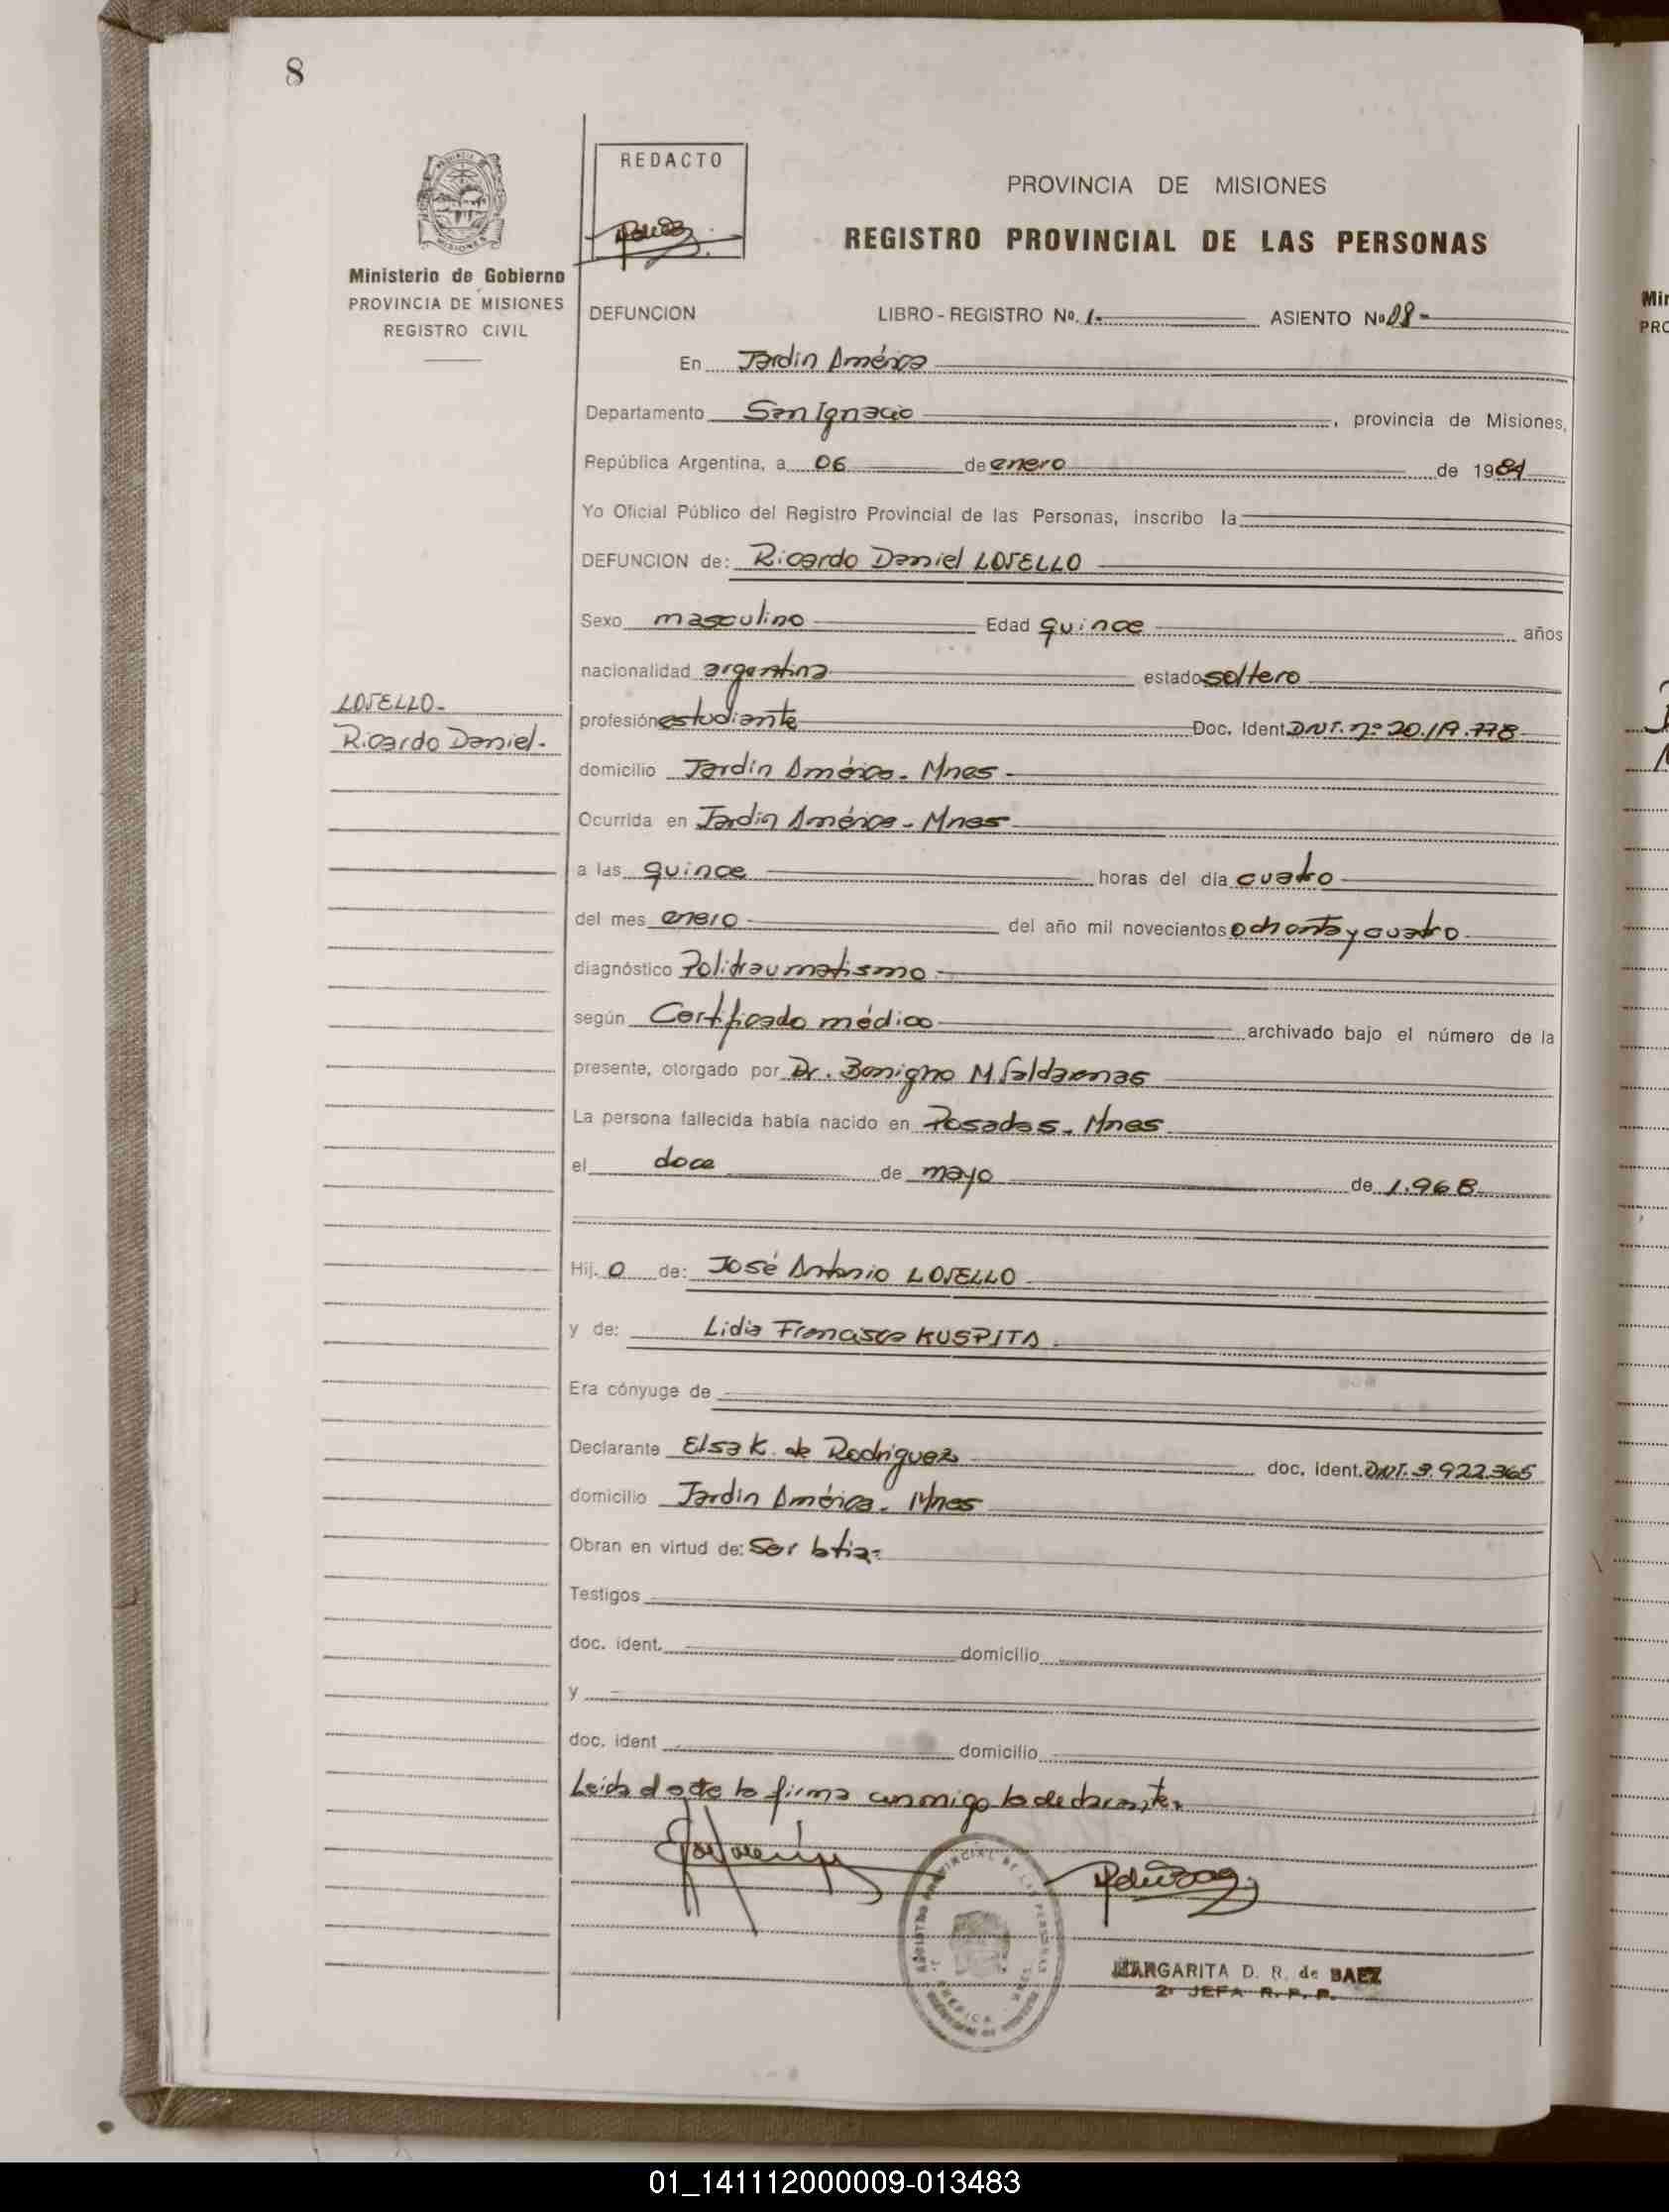 8
REDACTO
PROVINCIA DE MISIONES
REGISTRO PROVINCIAL DE LAS PERSONAS
Ministerio de Gobierno
PROVINCIA DE MISIONES
REGISTRO CIVIL
DEFUNCION LIBRO - REGISTRO Nº. 1.- ASIENTO Nº 08-
En Jardín América
Departamento San Ignacio, provincia de Misiones,
República Argentina, a 06 de enero de 1984
Yo Oficial Público del Registro Provincial de las Personas, inscribo la
DEFUNCION de: Ricardo Daniel LOSELLO
Sexo masculino Edad quince años
nacionalidad argentina estado soltero
LOSELLO-
Ricardo Daniel.-
profesión estudiante Doc. Ident. DNI. nº 20.119.778
domicilio Jardín América - Mnes
Ocurrida en Jardín América - Mnes
a las quince horas del día cuatro
del mes enero del año mil novecientos ochenta y cuatro
diagnóstico Politraumatismo
según Certificado médico archivado bajo el número de la
presente, otorgado por Dr. Benigno M.
La persona fallecida había nacido en Posadas - Mnes
el doce de mayo de 1.968
Hij. o de: José Antonio LOSELLO
y de: Lidia Francisca KUSPITA
Era cónyuge de
Declarante Elsa K. de Rodriguez doc. ident. DNI. 3.922.365
domicilio Jardín América - Mnes
Obran en virtud de: Ser la tía-
Testigos
doc. ident. domicilio
y
doc. ident domicilio
Leída el acta la firma conmigo la declarante.
REGISTRO PROVINCIAL DE LAS PERSONAS
MARGARITA D. R. de BAEZ
2ª JEFA R. P. P.
01_141112000009-013483